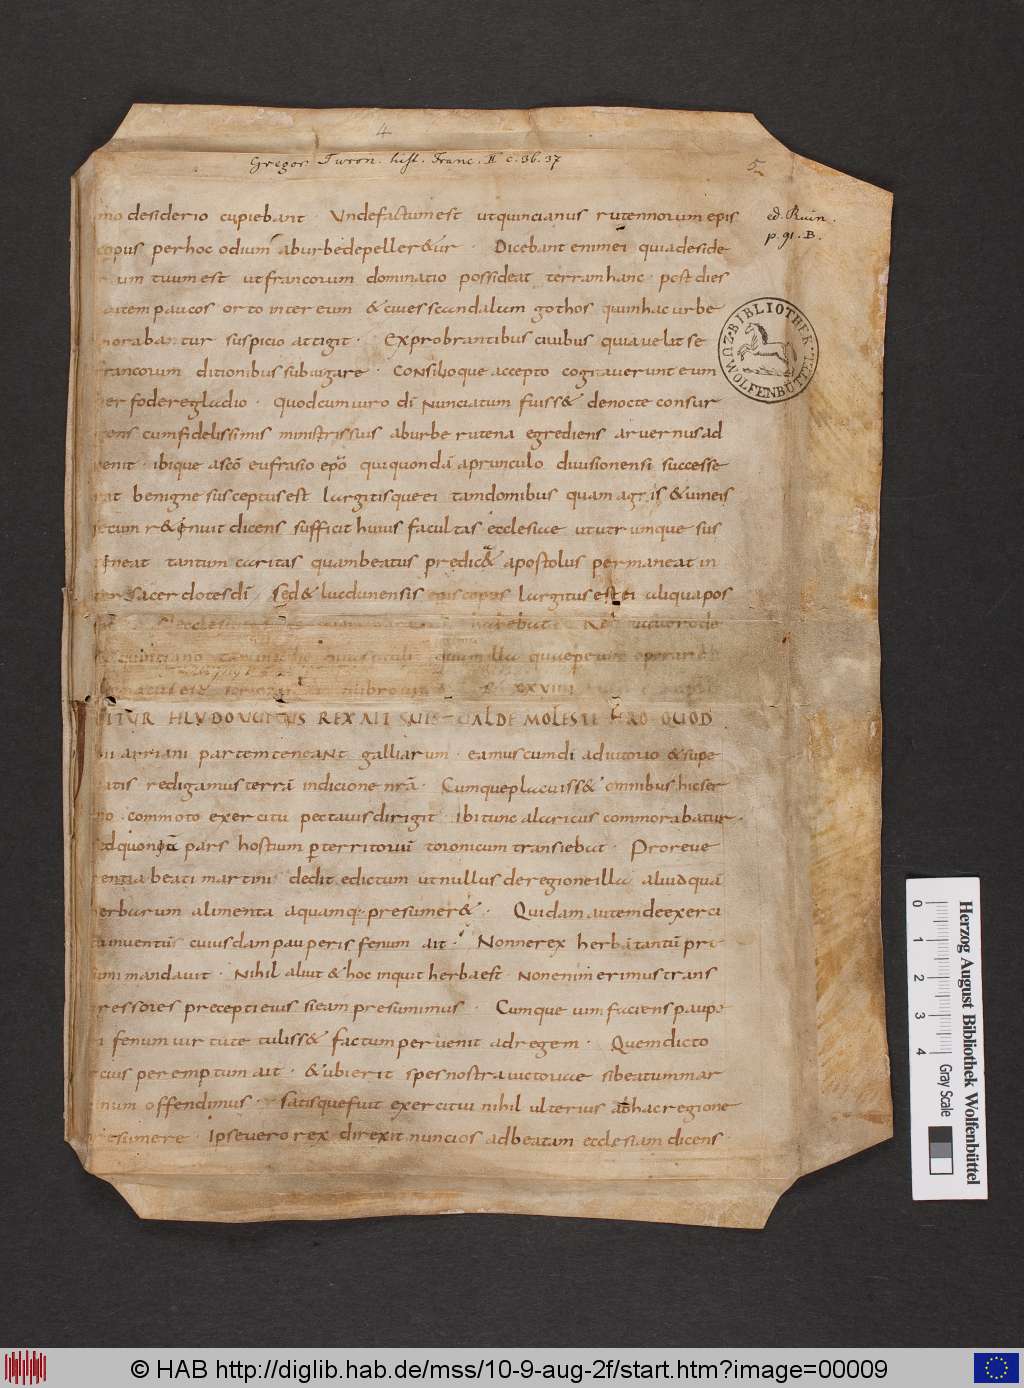 4
Gregor Turon. hist. Franc. II c. 36. 37
5
mo desiderio cupiebant · Undefactumest utquincianus rutennorum epis
ed. Ruin.
p. 91. B.
copus perhoc odium aburbedepeller&ur · Dicebant enimei quiadeside
rium tuumest utfrancorum dominatio possideat terramhanc · post dies
autem paucos orto inter eum & ciues scandalum gothos quiinhac urbe
morabantur suspicio attigit · Exprobrantibus ciuibus quiauelit se
francorum ditionibus subiugare · Consilioque accepto cogitauerunt eum
perfoderegladio · Quodcumuiro dī nunciatum fuiss& denocte consur
gens cumfidelissimis ministrissuis aburbe rutena egrediens aruernusad
uenit · ibique ascō eufrasio epō quiquondā aprunculo diuisionensi successe
rat benigne susceptusest largitisqueei tamdomibus quam agris & uineis
secum r&inuit dicens sufficit huius facultas ecclesiae ututrumque sus
tineat tantum caritas quambeatus predic& apostolus permaneat in
ter sacerdotesdī · Sed & lucdunensis episcopus largitusestei aliquapos
ecclesiae habebat
quintiano
XXVIII
ITUR HLUDOUUICUS REX AIT SUIS UALDE MOLESTE FERO QUOD
hii arriani partemteneant galliarum · eamus cumdī adiutorio & supe
ratis redigamusterrā indicione nrā · Cumqueplacuiss& omnibus hicser
mo · commoto exercitu pectauisdirigit · Ibitunc alaricus commorabatur ·
Sedquoniā pars hostium p territoriū toronicum transiebat · Proreue
rentia beati martini dedit edictum utnullus deregioneilla aliudquā
herbarum alimenta aquamq; presumer& · Quidam autemdeexerci
tu inuentū cuiusdam pauperis fenum ait · Nonnerex herbātantū pre
sumi mandauit · Nihil aliut & hoc inquit herbaest · Nonenim erimus trans
gressores precepti eius sieam presumimus · Cumque uim faciens paupe
ri fenum uirtute tuliss& factum peruenit adregem · Quemdicto
cius peremptum ait · & ubierit spes nostra uictoriae sibeatummar
tinum offendimus · Satisquefuit exercitui nihil ulterius adhacregione
presumere · Ipseuero rex direxit nuncios adbeatam ecclesiam dicens ·
BIBLIOTHEK ZU WOLFENBÜTTEL
0 1 2 3 4
Gray Scale
Herzog August Bibliothek Wolfenbüttel
© HAB http://diglib.hab.de/mss/10-9-aug-2f/start.htm?image=00009